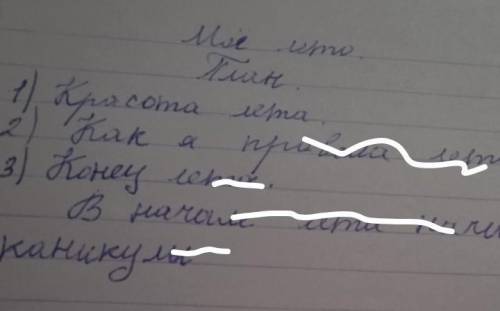 Моё лето.
План.
1) Красота лета.
2) Как я провела
3) Конец лета.
В начале лета
каникулы